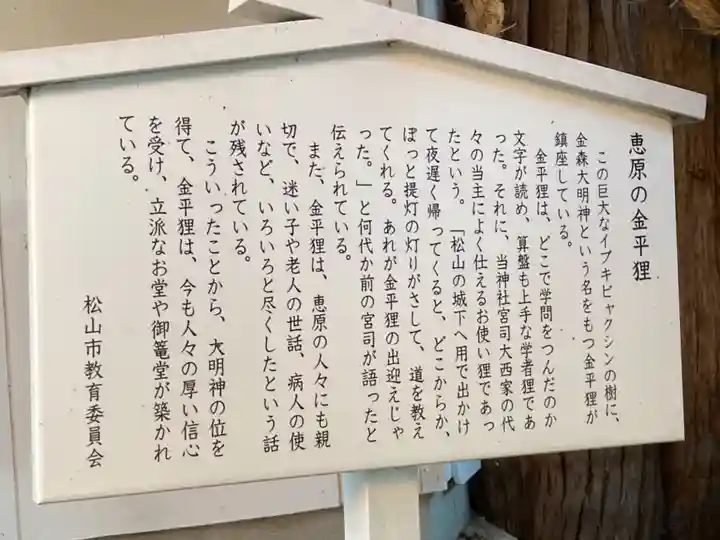 恵原の金平狸
この巨大なイブキビャクシンの樹に、
金森大明神という名をもつ金平狸が
鎮座している。
金平狸は、どこで学問をつんだのか
文字が読め、算盤も上手な学者狸であ
った。それに、当神社宮司大西家の代
々の当主によく仕えるお使い狸であっ
たという。「松山の城下へ用で出かけ
て夜遅く帰ってくると、どこからか、
ぼっと提灯の灯りがさして、道を教え
てくれる。あれが金平狸の出迎えじゃ
った。」と何代か前の宮司が語ったと
伝えられている。
また、金平狸は、恵原の人々にも親
切で、迷い子や老人の世話、病人の使
いなど、いろいろと尽くしたという話
が残されている。
こういったことから、大明神の位を
得て、金平狸は、今も人々の厚い信心
を受け、立派なお堂や御篭堂が築かれ
ている。
松山市教育委員会